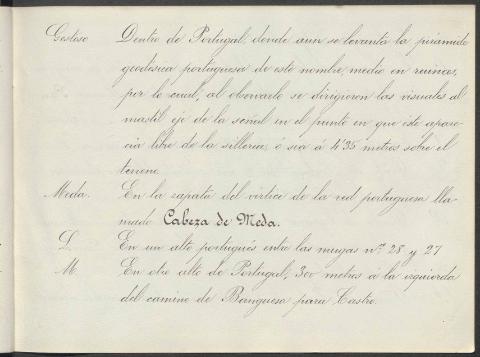 Gestoso Dentro de Portugal, donde aun se levanta la piramide
geodésica portuguesa de este nombre, medio en ruinas,
por lo cual, al observarlo se dirigieron las visuales al
mastil eje de la señal en el punto en que éste apare-
cia libre de la silleria, ó sea á 4'35 metros sobre el
terreno.
Meda. En la zapata del vértice de la red portuguesa lla-
mado Cabeza de Meda.
L. En un alto portugués entre las mugas nos. 28 y 27
M. En otro alto de Portugal, 300 metros á la izquierda
del camino de Banguesa para Castro.